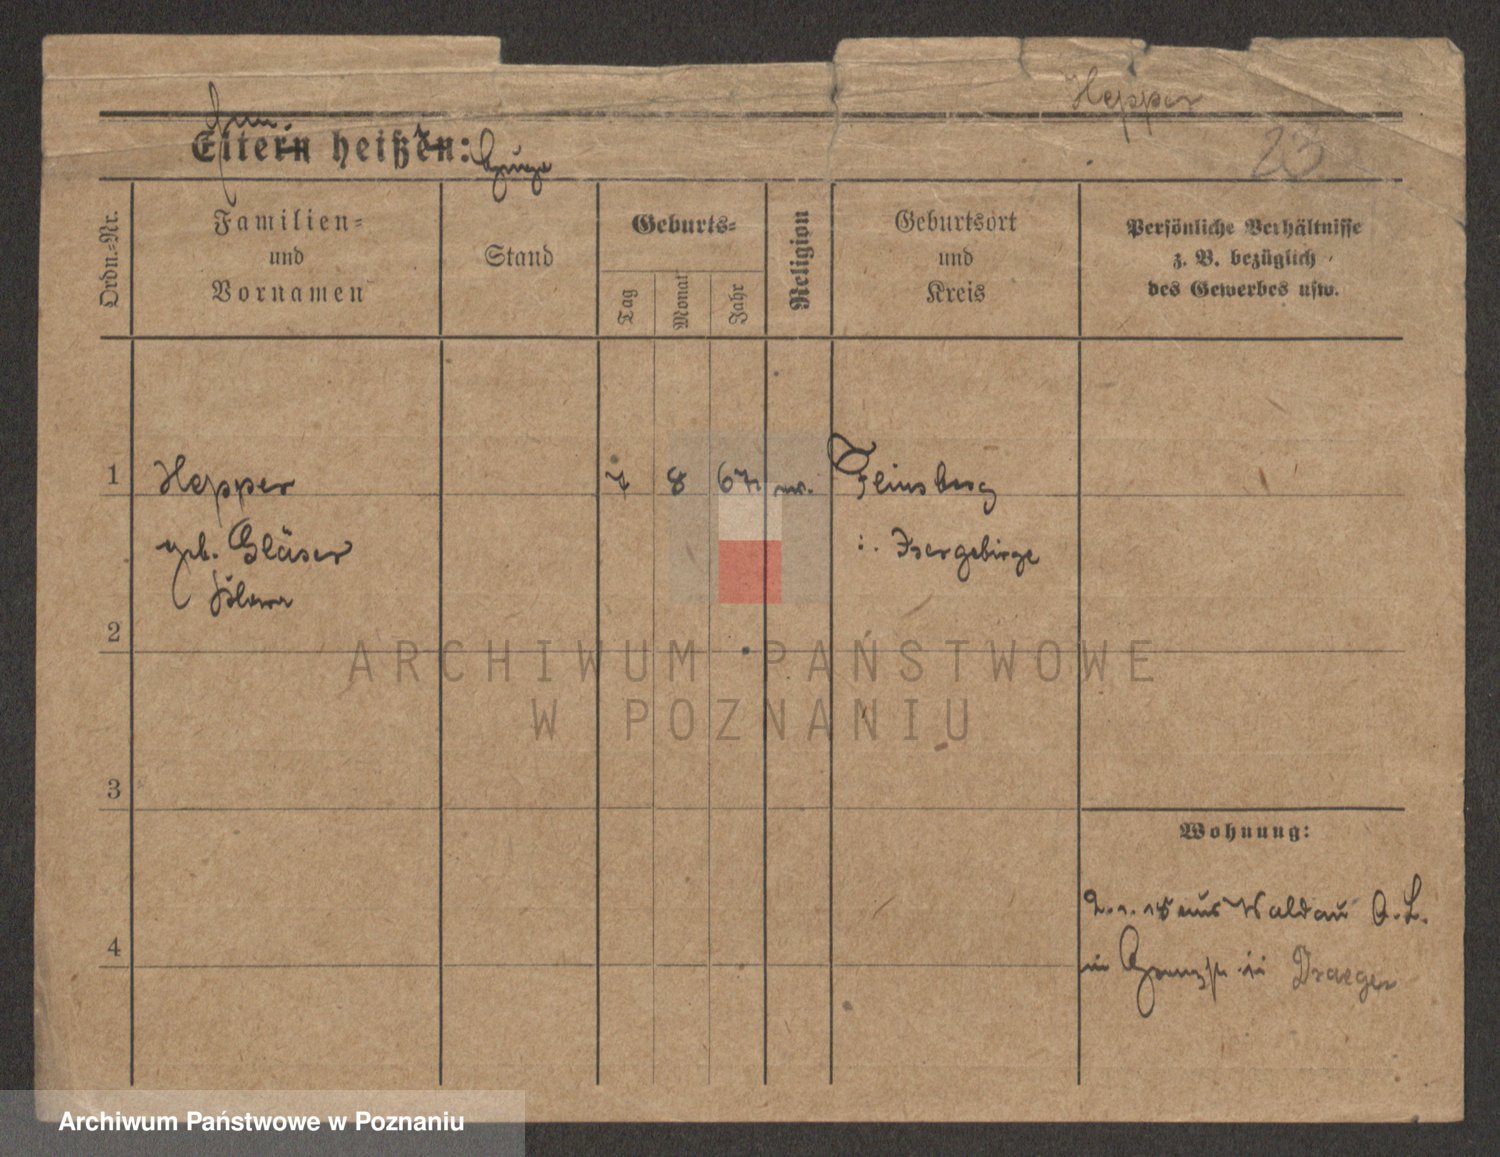 Hepper
Eltern heißen:
23
Ordn.-Nr.
Familien-
und
Vornamen
Stand
Geburts-
Tag
Monat
Jahr
Religion
Geburtsort
und
Kreis
Persönliche Verhältnisse
z. B. bezüglich
des Gewerbes usw.
1
Hepper
7
8
67
ev.
Flinsberg
geb. Gläser
i. Isergebirge
Klara
2
ARCHIWUM PAŃSTWOWE
W POZNANIU
3
Wohnung:
aus Waldau O. L.
4
in Draeger
Archiwum Państwowe w Poznaniu